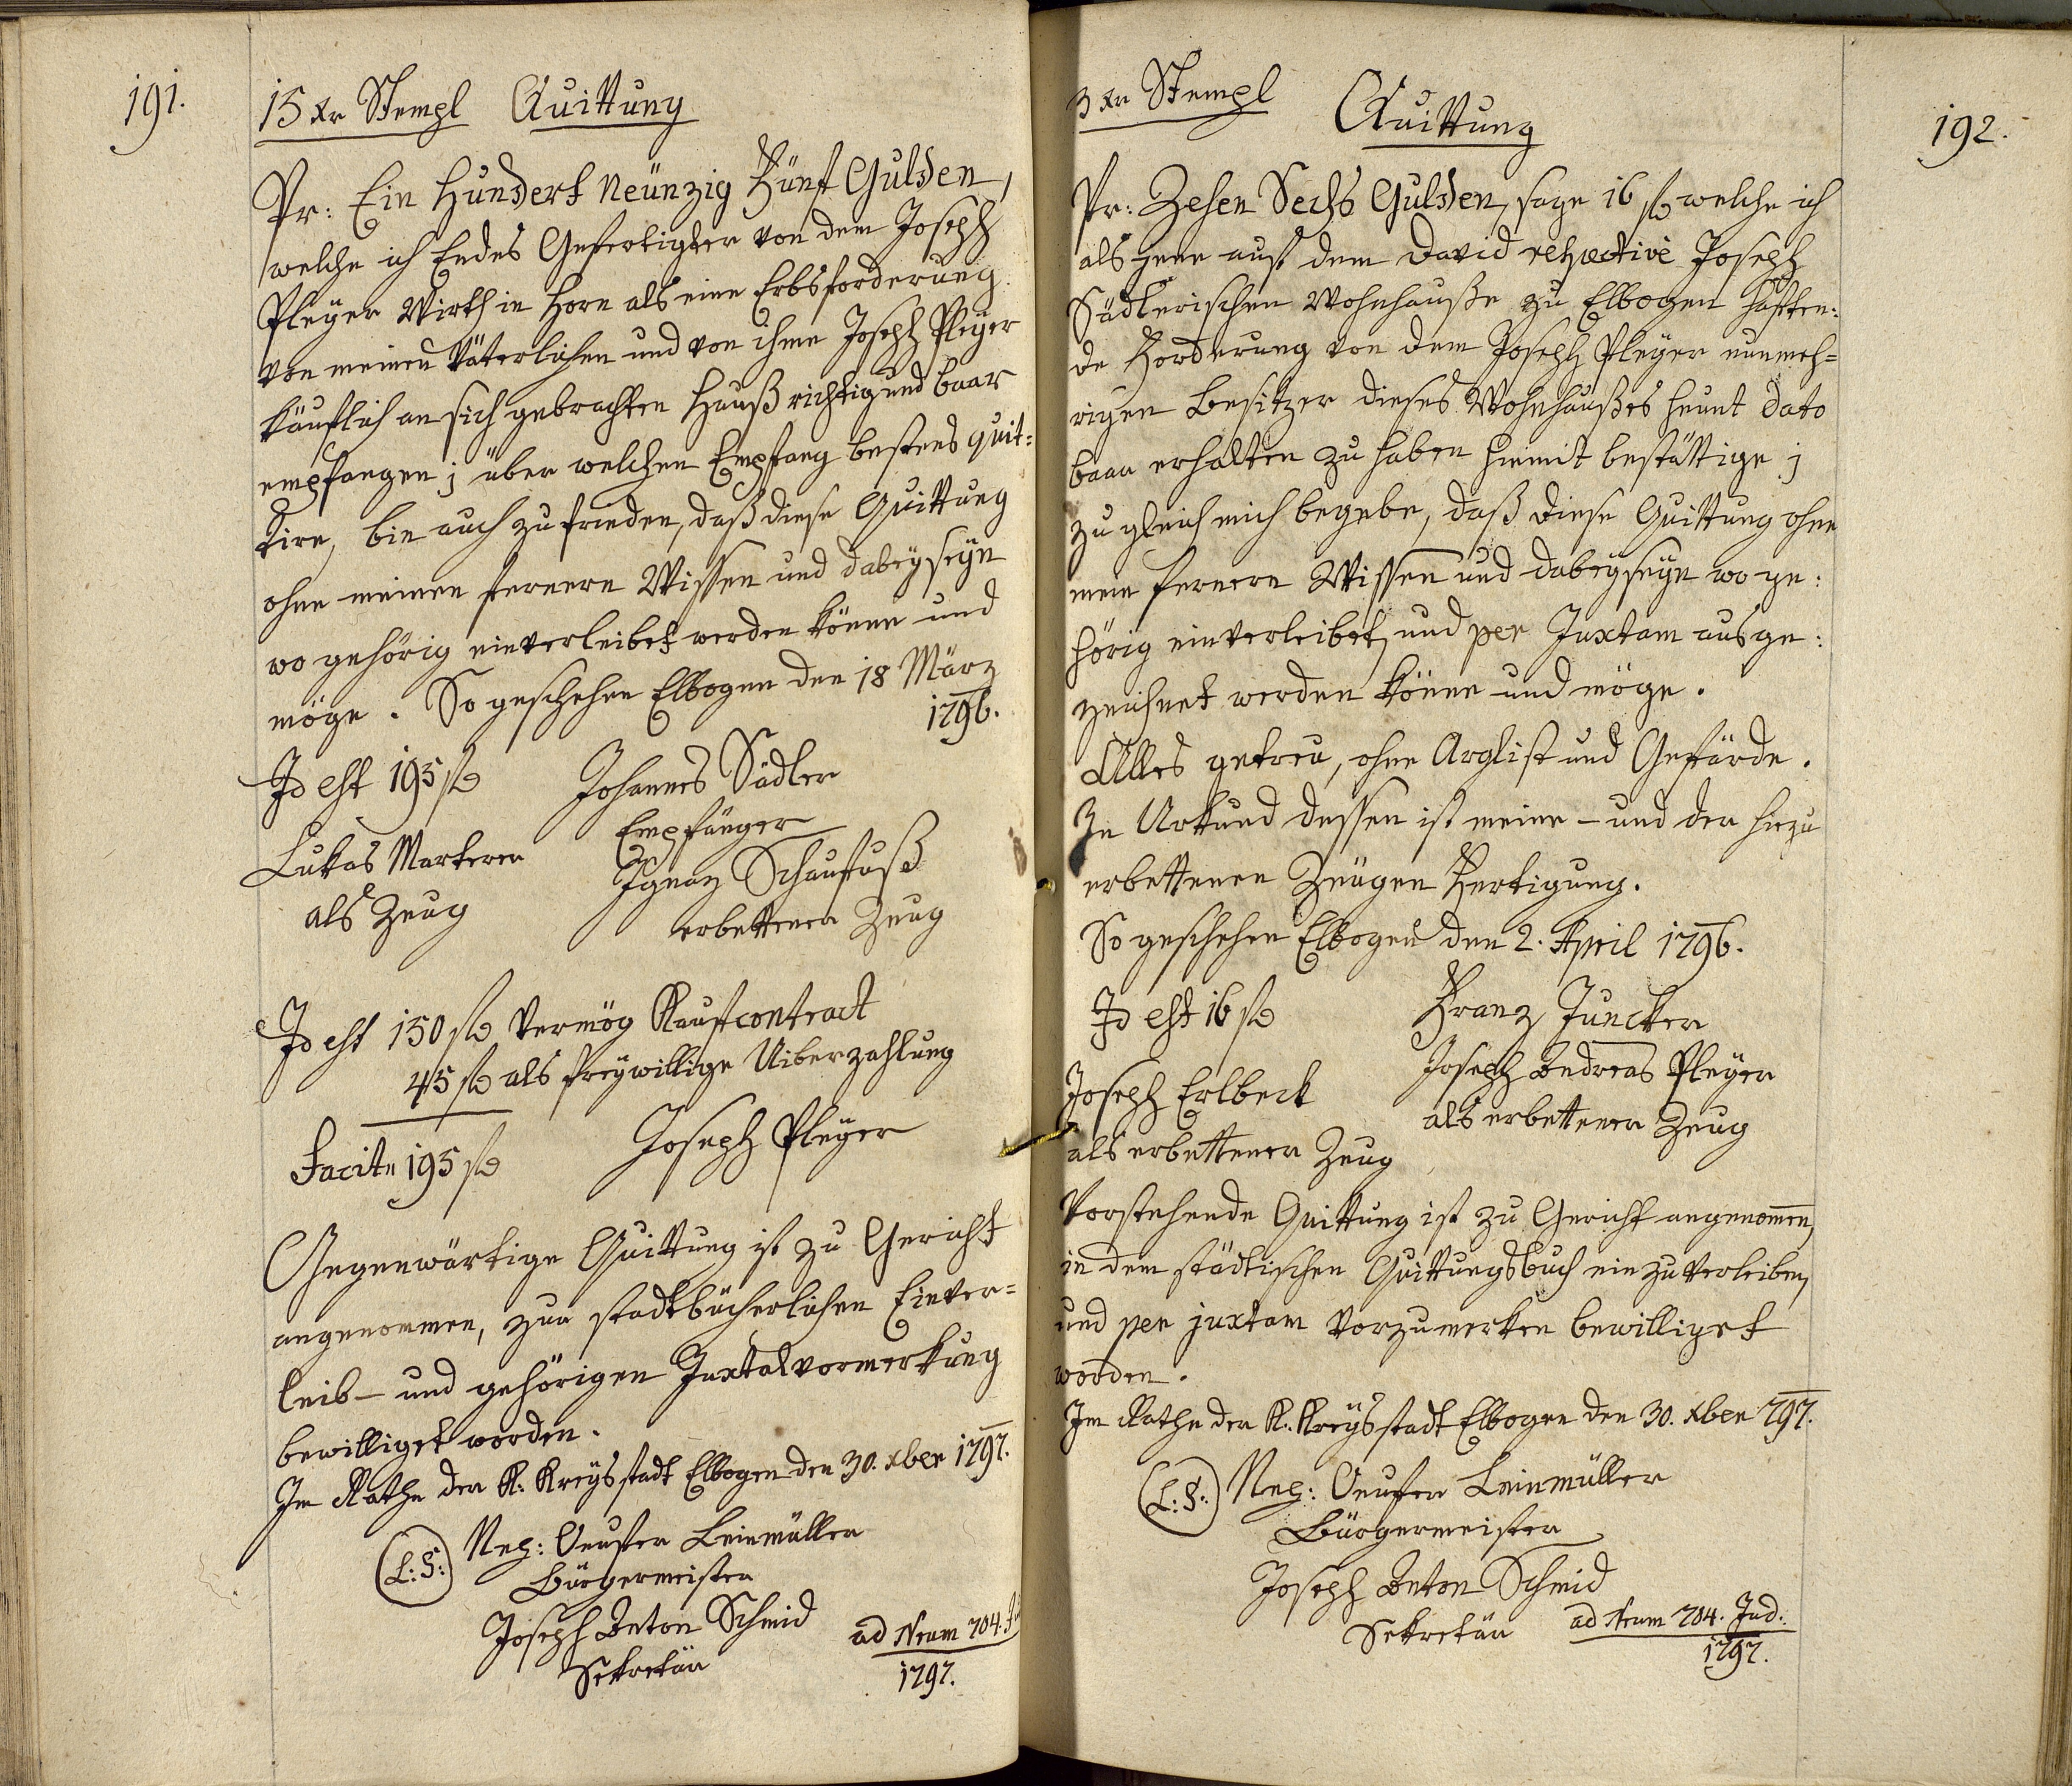 191.
15 Xr Stempl Quittung
Pr: Ein Hundert Neünzig Fünf Gulden,
welche ich Endes Gefertigter von dem Joseph
Pleÿer Wirth in Horn als eine Erbsforderung
von meinen Väterlichen und von ihme Joseph Pleÿer
käuflich an sich gebrachten Hauß richtig und baar
empfangen; über welchen Empfang bestens quit:
tire, bin auch zufrieden, daß diese Quittung
ohne meinen fernern Wissen und dabeÿseÿn
wo gehörig einverleibet werden könne und
möge. So geschehen Elbogen den 18 März
1796.
Id est 195 f Johannes Sädler
Empfänger
Lukas Markerer Ignaz Schaufuß
als Zeug erbettener Zeug
Id est 150 f Vermög Kaufcontract
45 f als freÿwillige Uiberzahlung
Facit 195 f Joseph Pleÿer
Gegenwärtige Quittung ist zu Gericht
angenommen, zur stadtbücherlichen Einver=
leib- und gehörigen Juxtalvormerkung
bewilliget worden.
Im Rathe der K: Kreÿsstadt Elbogen den 30. Xber 1797.
(L:S:) Nep: Leinmüller
Bürgermeister
Joseph Anton Schmid
Sekretär
ad Nrum 704.
1797.
3 Xr Stempl
Quittung
192.
Pr: Zehen Sechs Gulden, sage 16 f welche ich
als jene auf dem David respective Joseph
Sädlerischen Wohnhauße zu Elbogen haften:
de Forderung von dem Joseph Pleÿer nunmeh=
rigen Besitzer dieses Wohnhaußes heunt dato
baar erhalten zu haben hiemit bestättige;
zugleich mich begebe, daß diese Quittung ohne
mein fernern Wissen und dabeÿseÿn wo ge:
hörig einverleibet, und per Juxtam ausge:
zeichnet werden könne und möge.
Alles getreu, ohne Arglist und Gefärde.
In Urkund dessen ist meine - und der hiezu
erbettenen Zeügen Fertigung.
So geschehen Elbogen den 2. April 1796.
Id est 16 f Franz Juncker
Joseph Andreas Pleÿer
Joseph Erlbeck als erbettener Zeug
als erbettener Zeug
Vorstehende Quittung ist zu Gericht angenommen,
in dem städtischen Quittungsbuch einzuverleiben,
und per juxtam vorzumerken bewilliget
worden.
Im Rathe der K: Kreÿsstadt Elbogen den 30. Xber 797.
(L:S:) Nep: Leinmüller
Bürgermeister
Joseph Anton Schmid
Sekretär ad Nrum 704. Jud:
1797.